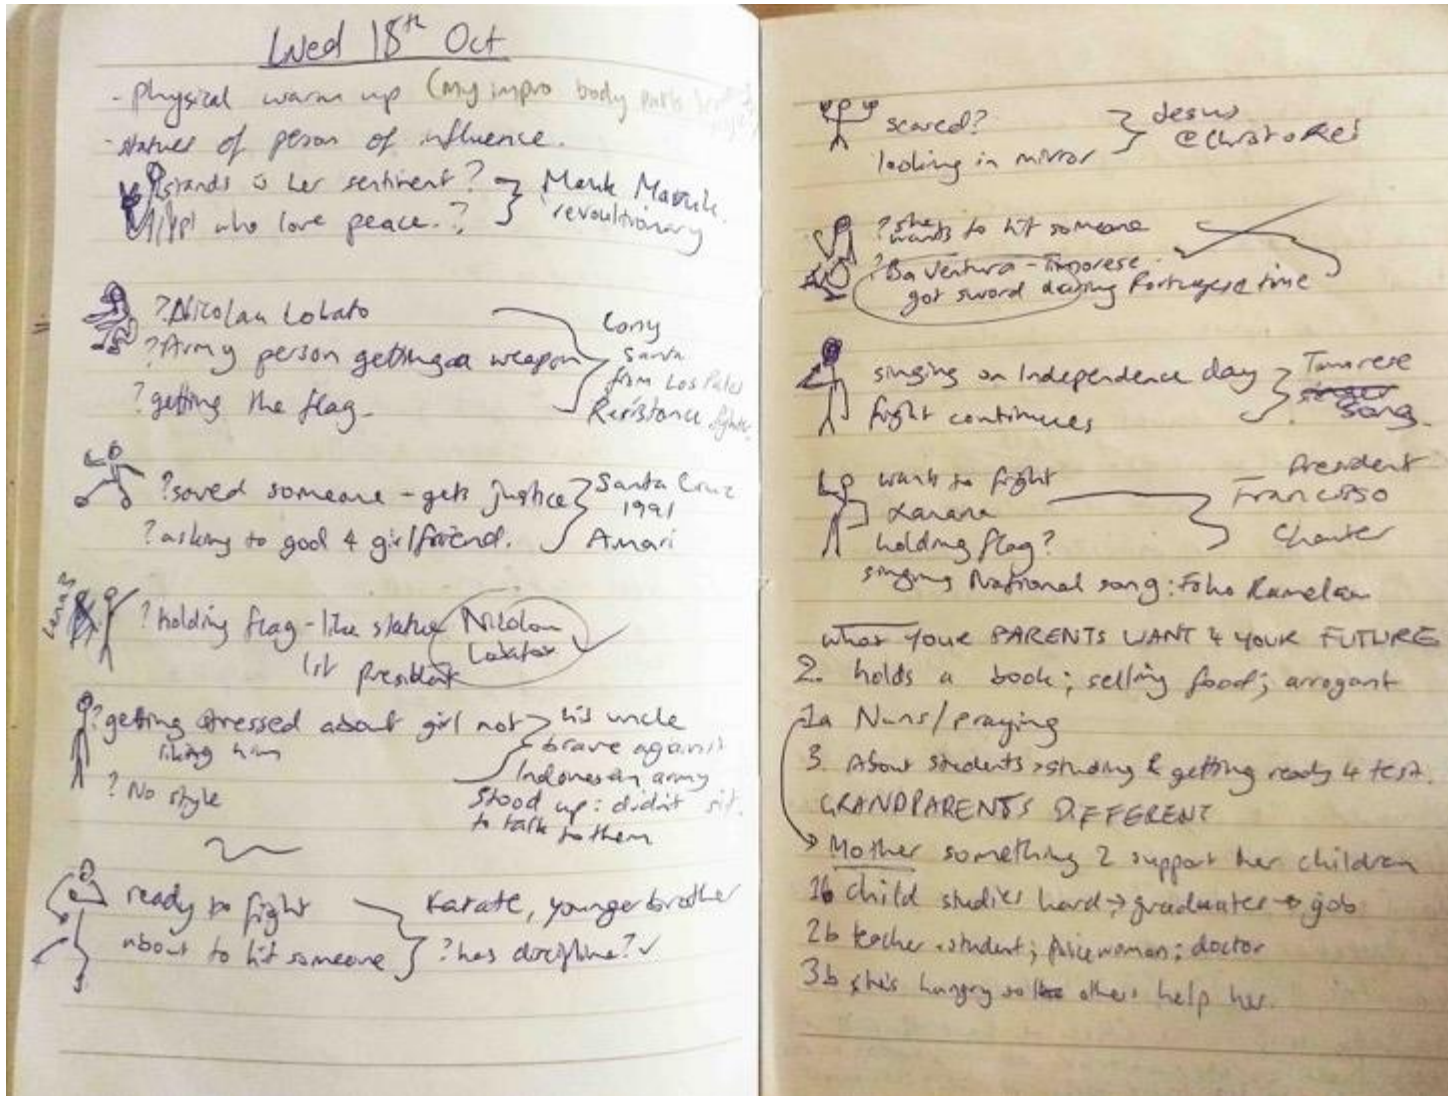 Wed 18th Oct
- Physical warm up (my impro body parts
- statues of person of influence.
stands is her sentiment?
ppl who love peace.?
revoultionary
? Nicolau Lobato
? Army person getting a weapon
? getting the flag.
Santa
from Los Palos
Resistance fighter
? saved someone - gets justice
? asking to god 4 girlfriend.
Santa Cruz
1991
Amari
? holding flag - like statue
1st President
? getting stressed about girl not
liking him
? No style
his uncle
brave against
Indonesian army
Stood up: didn't sit.
to talk to them
ready to fight
about to hit someone
Karate, younger brother
? has discipline? ✓
scared?
looking in mirror
Jesus
@ Cristo Rei
? she wants to hit someone
? Boaventura - Timorese
got sword during Portugese time
singing on Independence day
fight continues
Timorese
song
wants to fight
Xanana
holding flag?
President
singing National song: Foho Ramelau
what YOUR PARENTS WANT 4 YOUR FUTURE
2. holds a book; selling food; arrogant
1a Nuns/praying
3. About students > studing & getting ready 4 test.
GRANDPARENTS DIFFERENT
Mother something 2 support her children
1b child studies hard → graduates → job
2b teacher + student; policewoman; doctor
3b she's hungry so others help her.